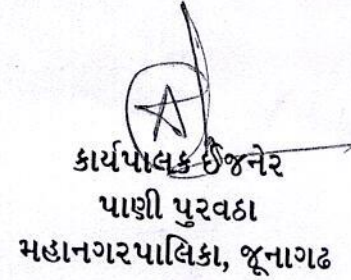 કાર્યપાલક ઈજનેર
પાણી પુરવઠા
મહાનગરપાલિકા, જૂનાગઢ